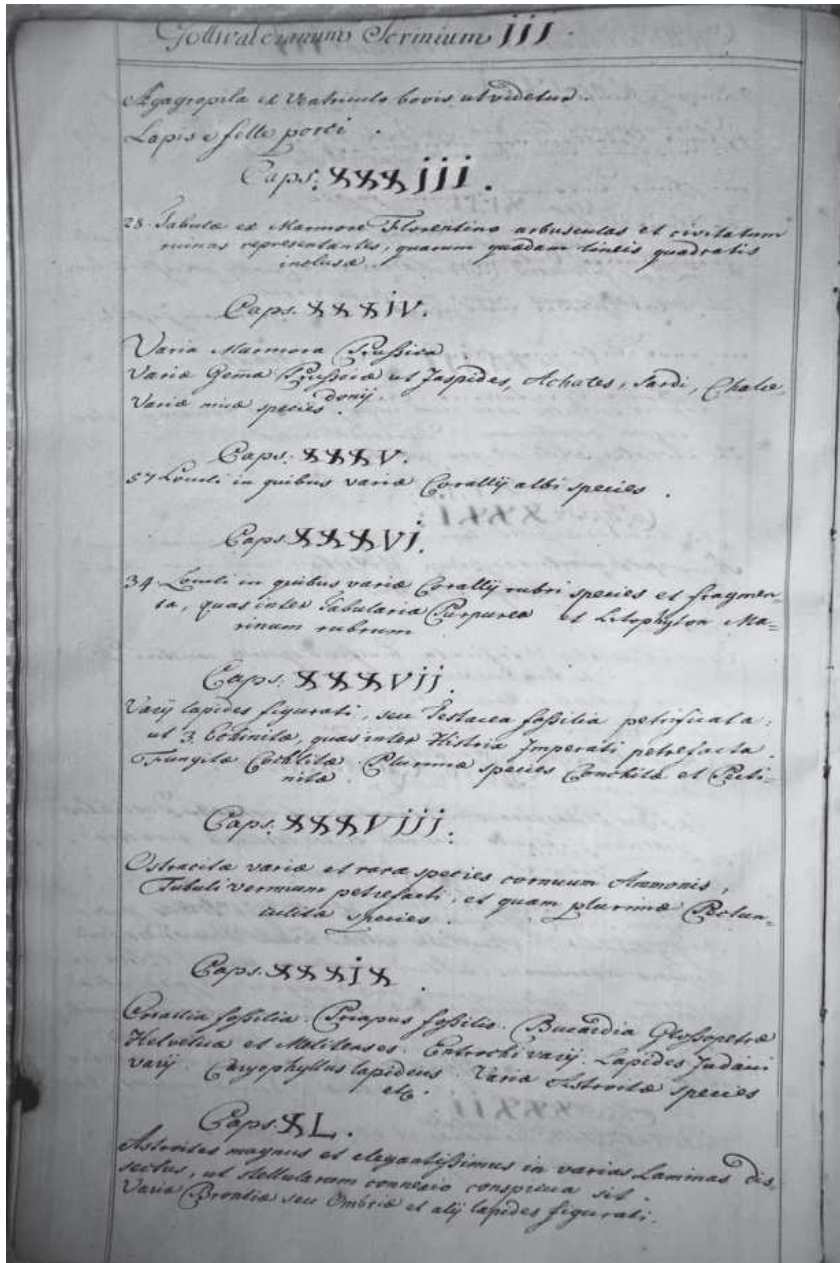 Gottwaldianum Scrinium III.
Ægagropila et Ventriculo bovis ut videtur.
Lapis e felle porci.
Caps: XXXiii.
28. Tabulæ ex Marmore Florentino arbusculas et civitatum
ruinas representantes, quarum quædam lineis quadratis
inclusæ.
Caps. XXXiv.
Varia Marmora Prussica
Variæ Gem̄æ Prussicæ ut Jaspides, Achates, Sardi, Chalce=
donij.
Variæ species.
Caps: XXXV.
57 Loculi in quibus variæ Corallij albi species.
Caps. XXXVi.
34. Loculi in quibus variæ Corallij rubri species et fragmen=
ta, quas inter Tubularia Purpurea et Litophyton Ma=
rinum rubrum
Caps. XXXVii.
Varij lapides figurati, seu Testacea fossilia petrificata,
ut 3. Echinitæ, quas inter Histrix Imperati petrefacta.
Fungitæ Cochlitæ. Plurimæ species Conchitæ et Pecti=
nitæ.
Caps. XXXViii.
Ostracitæ variæ et raræ species cornuum Ammonis,
Tubuli vermium petrefacti, et quam plurimæ Pectun=
culitæ species.
Caps. XXXiX.
Corallia fossilia. Priapus fossilis. Bucardia Glossopetræ
Helvetica et Melitenses. Entrochi varij. Lapides Judaici
varij. Caryophyllus lapideus. Variæ Astroitæ species
etc.
Caps. XL.
Astroites magnus et elegantissimus in varias Laminas dis=
sectus, ut stellularum connexio conspicua sit.
Varia Brontiæ seu Ombriæ et alij lapides figurati.